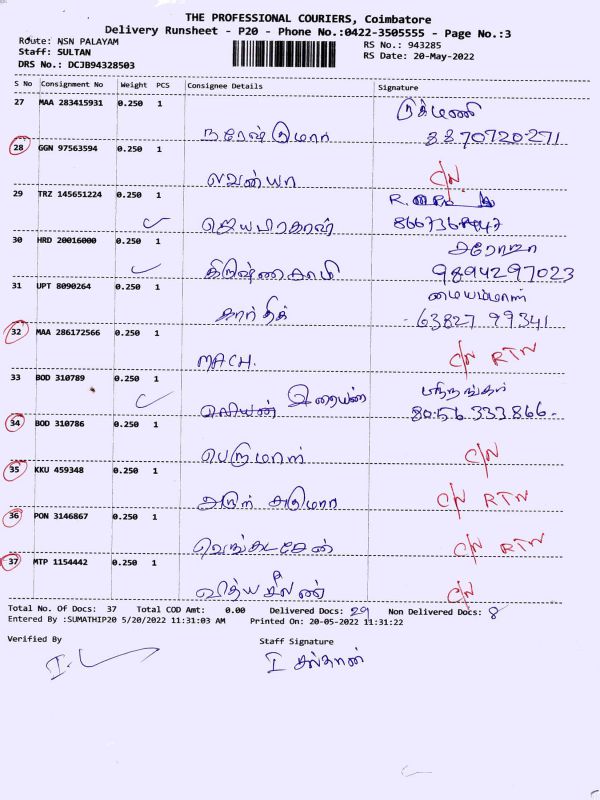 THE PROFESSIONAL COURIERS, Coimbatore
Delivery Runsheet - P20 - Phone No.:0422-3505555 - Page No.:3
Route: NSN PALAYAM
RS No.: 943285
Staff: SULTAN
RS Date: 20-May-2022
DRS No.: DCJB94328503
S No Consignment No Weight PCS Consignee Details Signature
27 MAA 283415931 0.250 1 ருக்மணி
நரேஷ்குமார் 8870720271
28 GGN 97563594 0.250 1
லாவன்யா C/N
29 TRZ 145651224 0.250 1 R.
ஜெயபிரகாஷ்
30 HRD 20016000 0.250 1 சரோஜா
9894297023
31 UPT 8090264 0.250 1
கார்த்திக் 63827 99341
32 MAA 286172566 0.250 1
MACH. C/N RTN
33 BOD 310789 0.250 1
8056 333 866
34 BOD 310786 0.250 1
பெருமாள் C/N
35 KKU 459348 0.250 1
C/N RTN
36 PON 3146867 0.250 1
வெங்கடசேன் C/N RTN
37 MTP 1154442 0.250 1
C/N
Total No. Of Docs: 37 Total COD Amt: 0.00 Delivered Docs: 29 Non Delivered Docs: 8
Entered By :SUMATHIP20 5/20/2022 11:31:03 AM Printed On: 20-05-2022 11:31:22
Verified By Staff Signature
I சுல்தான்